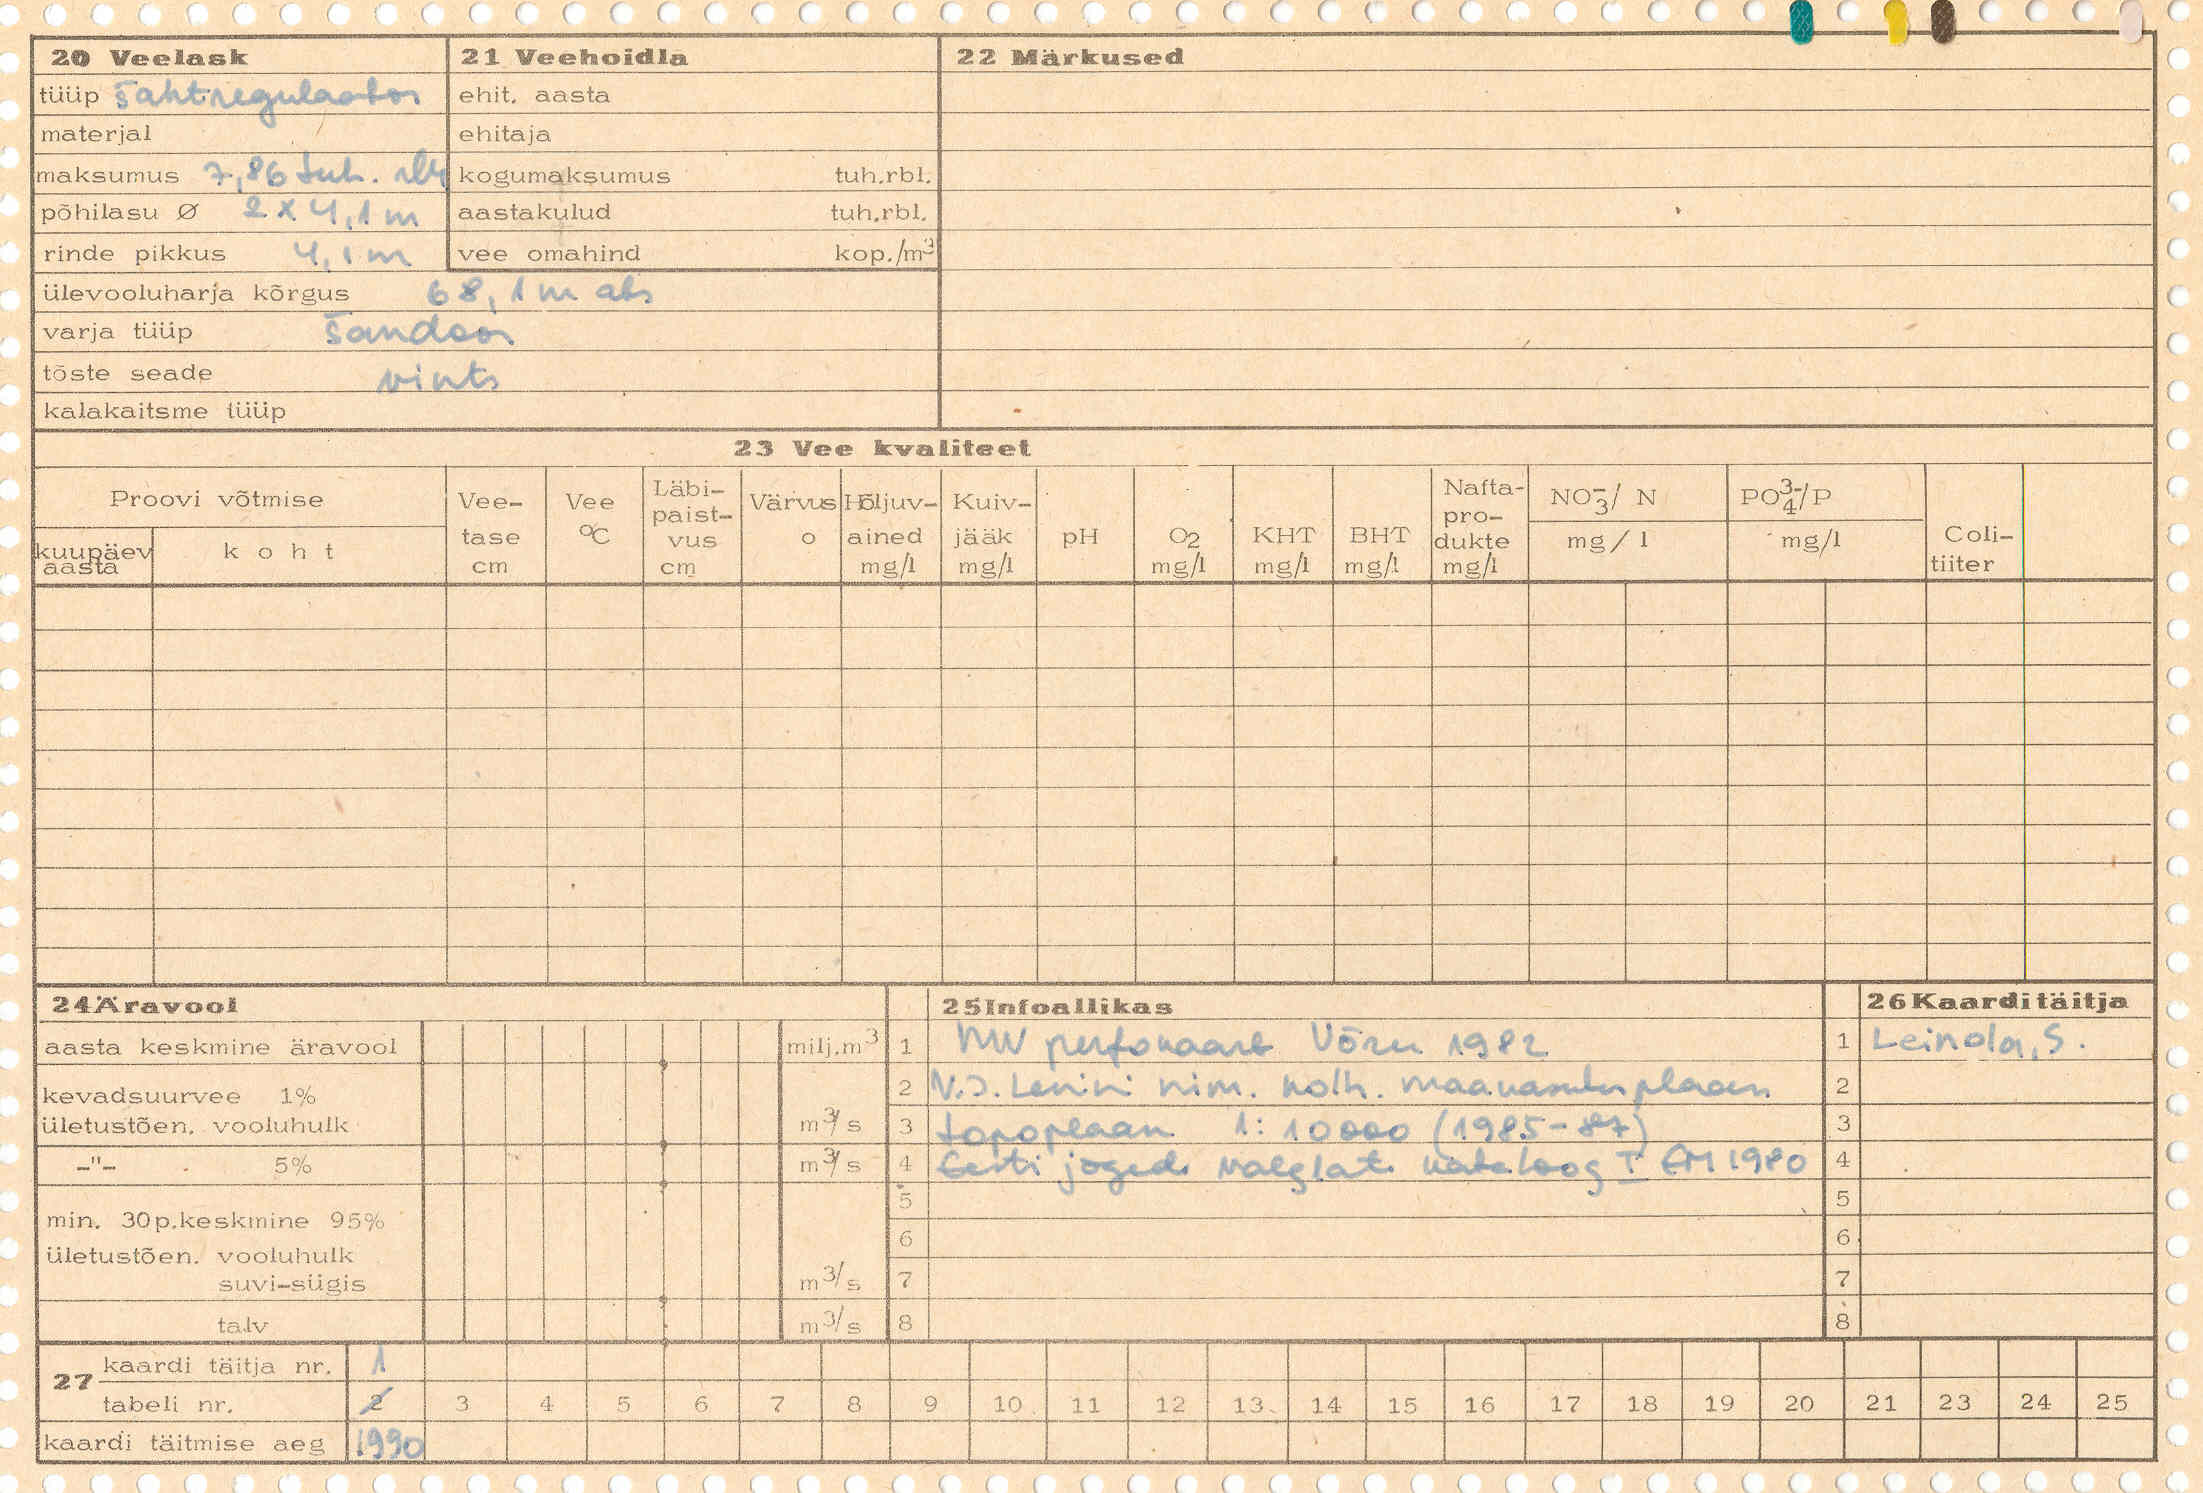 20 Veelask
tüüp šahtregulaator
materjal
maksumus 7,86 tuh. rbl
põhilasu Ø 2 x 4,1 m
rinde pikkus 4,1 m
ülevooluharja kõrgus 68,1 m abs
varja tüüp šandoor
tõste seade vints
kalakaitsme tüüp
21 Veehoidla
ehit. aasta
ehitaja
kogumaksumus tuh.rbl.
aastakulud tuh.rbl.
vee omahind kop./m3
22 Märkused
23 Vee kvaliteet
Proovi võtmise
kuupäev aasta
koht
Vee-
tase
cm
Vee
°C
Läbi-
paist-
vus
cm
Värvus
o
Hõljuv-
ained
mg/l
Kuiv-
jääk
mg/l
pH
O2
mg/l
KHT
mg/l
BHT
mg/l
Nafta-
pro-
dukte
mg/l
NO3-/ N
mg/l
PO43-/P
mg/l
Coli-
tiiter
24 Äravool
aasta keskmine äravool milj.m3
kevadsuurvee 1%
ületustõen. vooluhulk m3/s
-"- 5% m3/s
min. 30p.keskmine 95%
ületustõen. vooluhulk
suvi-sügis m3/s
talv m3/s
25 Infoallikas
1 MV perfokaart Võru 1982
2 V.I. Lenini nim. kolh. maakasutusplaan
3 topoplaan 1:10000 (1985-87)
4 Eesti jõgede valglate kataloog I EM 1980
5
6
7
8
26 Kaardi täitja
1 Leinola, S.
2
3
4
5
6
7
8
27 kaardi täitja nr. 1
tabeli nr. 2 3 4 5 6 7 8 9 10 11 12 13 14 15 16 17 18 19 20 21 23 24 25
kaardi täitmise aeg 1990